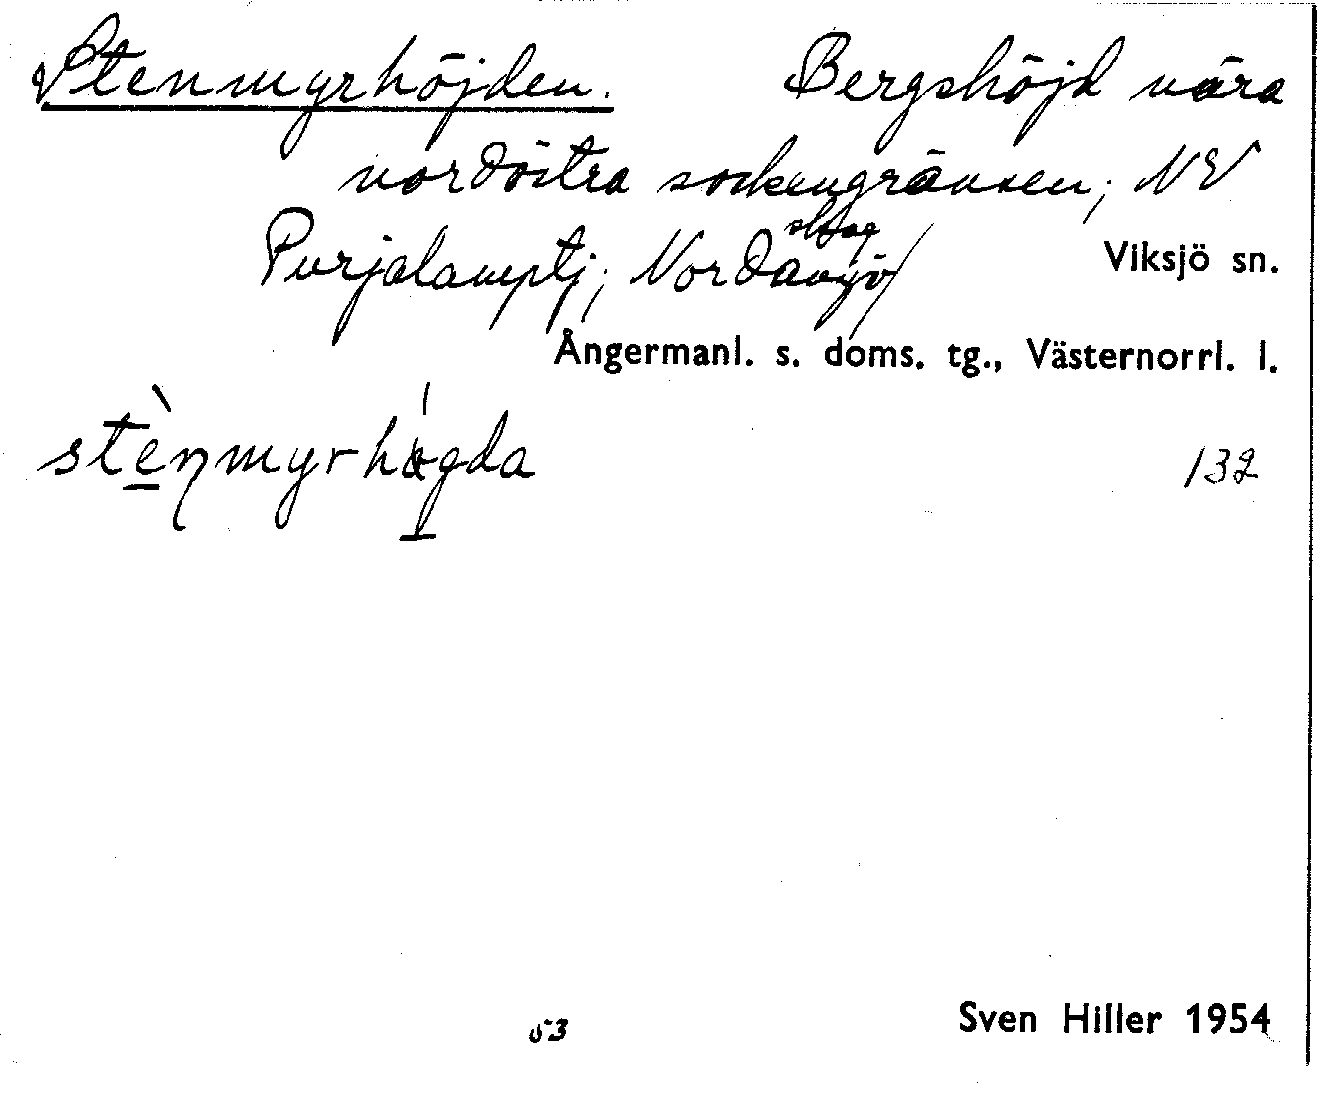 Stenmyrhöjden. Bergshöjd nära
nordöstra sockengränsen; NV
Purjalamptj; Nordansjö
Viksjö sn.
Ångermanl. s. doms. tg., Västernorrl. l.
stènmyrhö́gda
132
53
Sven Hiller 1954